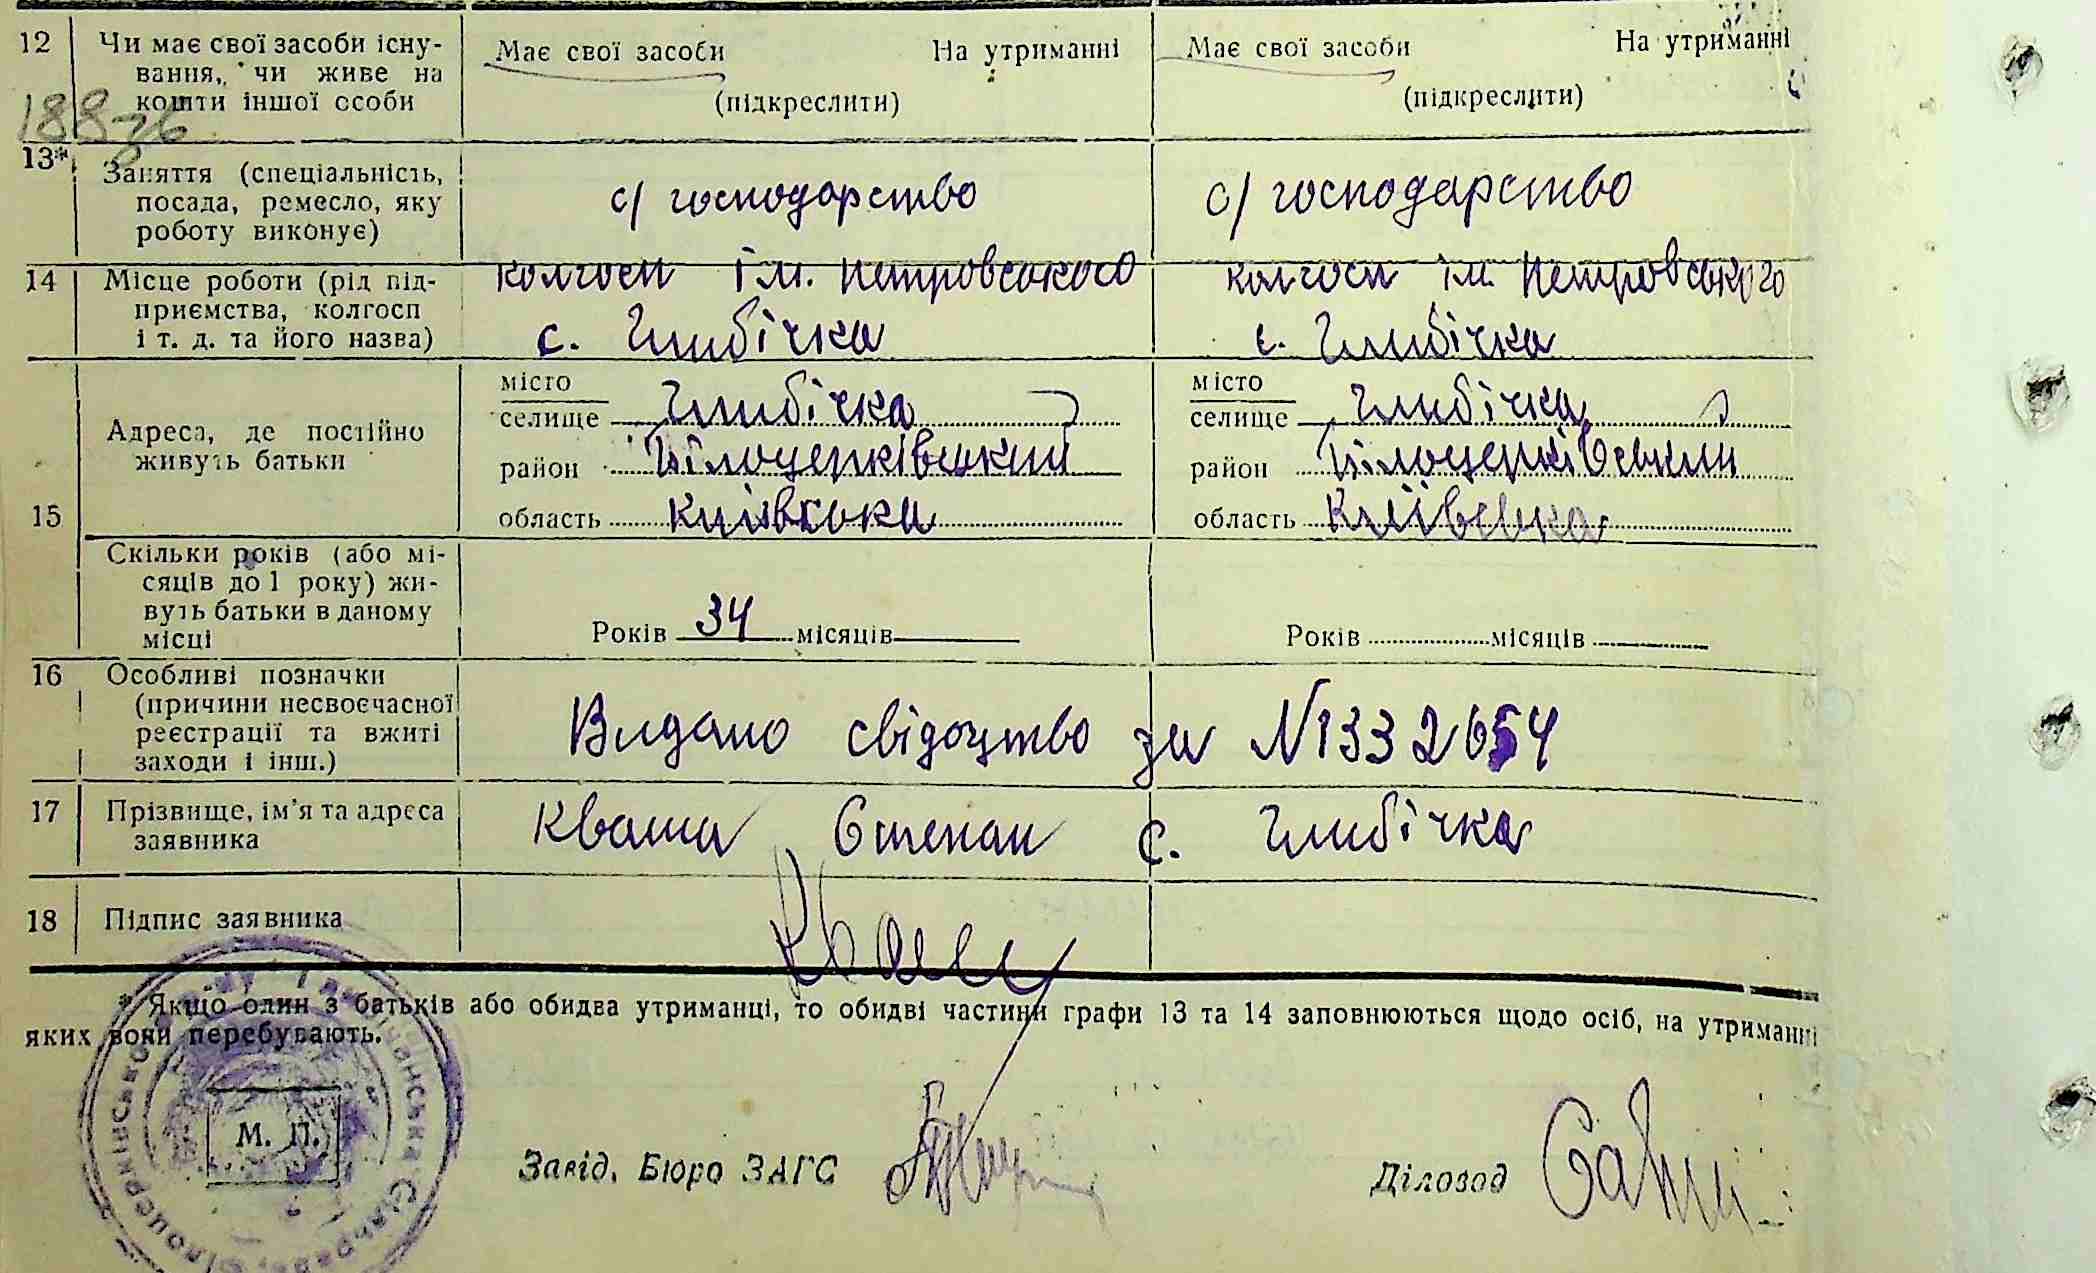 12 Чи має свої засоби існу-
вання, чи живе на
кошти іншої особи
Має свої засоби На утриманні
(підкреслити)
Має свої засоби На утриманні
(підкреслити)
188
13* Заняття (спеціальність,
посада, ремесло, яку
роботу виконує)
с/господарство
с/господарство
14 Місце роботи (рід під-
приємства, колгосп
і т. д. та його назва)
колгосп ім. Петровського
с. Глибічка
колгосп ім. Петровського
с. Глибічка
15 Адреса, де постійно
живуть батьки
місто
селище Глибічка
район Білоцерківський
область Київська
місто
селище Глибічка
район Білоцерківський
область Київська
Скільки років (або мі-
сяців до 1 року) жи-
вуть батьки в даному
місці
Років 34 місяців
Років місяців
16 Особливі позначки
(причини несвоєчасної
реєстрації та вжиті
заходи і інш.)
Видано свідоцтво за №1332654
17 Прізвище, ім’я та адреса
заявника
Кваша Степан с. Глибічка
18 Підпис заявника
Кваша
* Якщо один з батьків або обидва утриманці, то обидві частини графи 13 та 14 заповнюються щодо осіб, на утриманні
яких вони перебувають.
М. П.
Завід. Бюро ЗАГС
Діловод